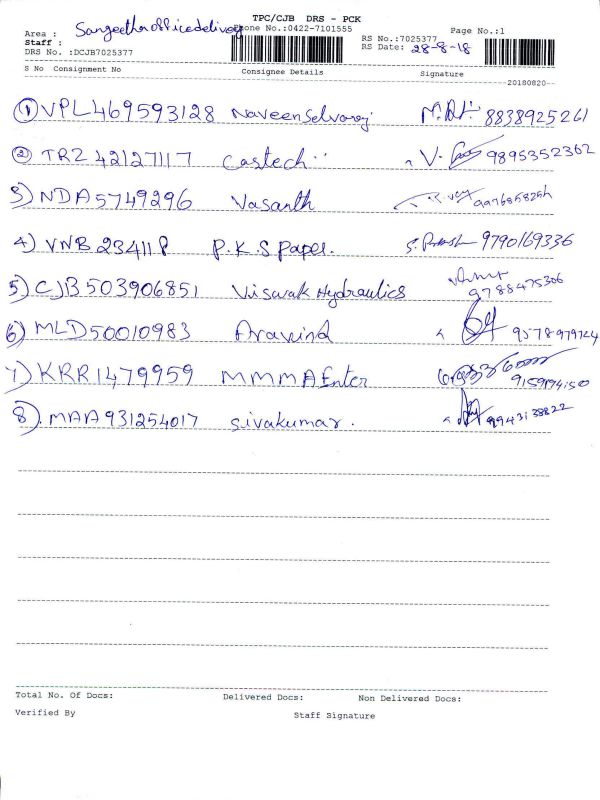 TPC/CJB DRS - PCK
Area : Sangeetha office delivery Phone No.:0422-7101555 Page No.:1
Staff : RS No.:7025377
DRS No. :DCJB7025377 RS Date: 28-8-18
S No Consignment No Consignee Details Signature
20180820
1 VPL469593128 Naveen Selvaraj 8838925261
2 TRZ 42127117 Castech 9895352362
3) NDA5749296 Vasanth
4) VNB 23411 P.K.S Paper. 9790169336
5) CJB503906851 Viswak Hydraulics 9788475306
6) MLD50010983 Aravind
7) KRR1479959 M M M A Enter
8). MAA931254017 Sivakumar. 9943138822
Total No. Of Docs: Delivered Docs: Non Delivered Docs:
Verified By Staff Signature